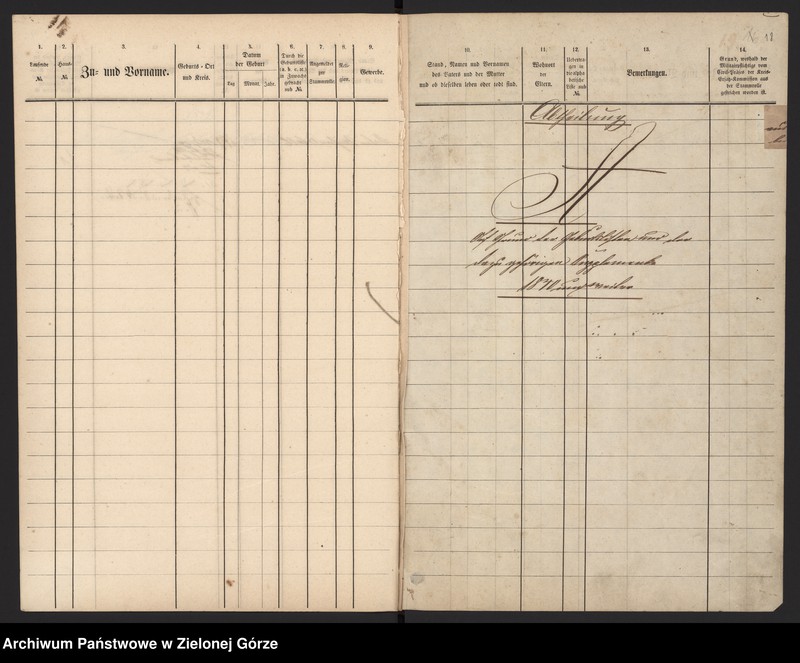 1.
Laufende
№.
2.
Haus-
№.
3.
Zu- und Vorname.
4.
Geburts-Ort
und Kreis.
5.
Datum
der Geburt
Tag
Monat.
Jahr.
6.
Durch die
Geburtsliste
in Zuwachs
gebracht
sub №.
7.
Angemeldet
zur
Stammrolle.
8.
Reli-
gion.
9.
Gewerbe.
10.
Stand, Namen und Vornamen
des Vaters und der Mutter
und ob dieselben leben oder todt sind.
11.
Wohnort
der
Eltern.
12.
Uebertra-
gen in
die alpha-
betische
Liste sub
№.
13.
Bemerkungen.
14.
Grund, weshalb der
Militairpflichtige vom
Civil-Präses der Kreis-
Ersatz-Kommission aus
der Stammrolle
gestrichen worden ist.
Abtheilung
A
Auf Grund der Geburtslisten und der
dazu gehörigen Supplemente
1870 und weiter
Archiwum Państwowe w Zielonej Górze